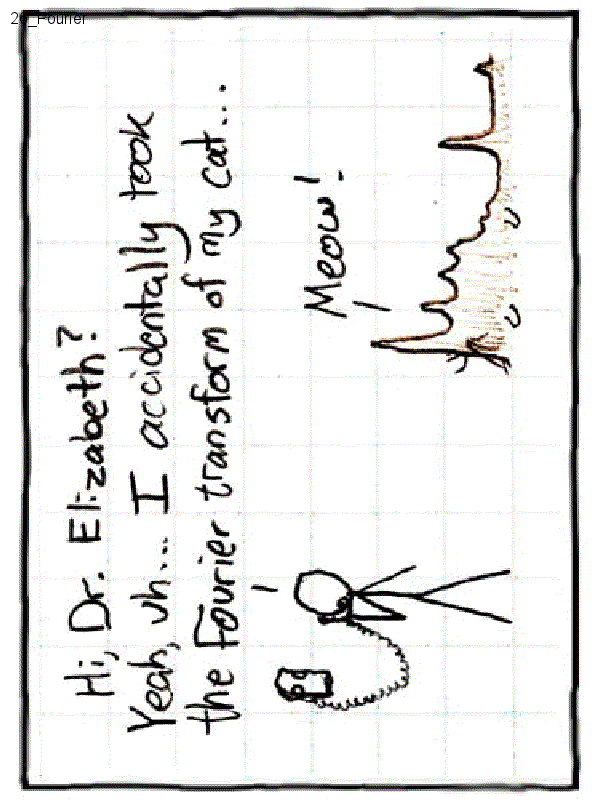 26_Fourier
Hi, Dr. Elizabeth?
Yeah, uh... I accidentally took
the Fourier transform of my cat...
Meow!